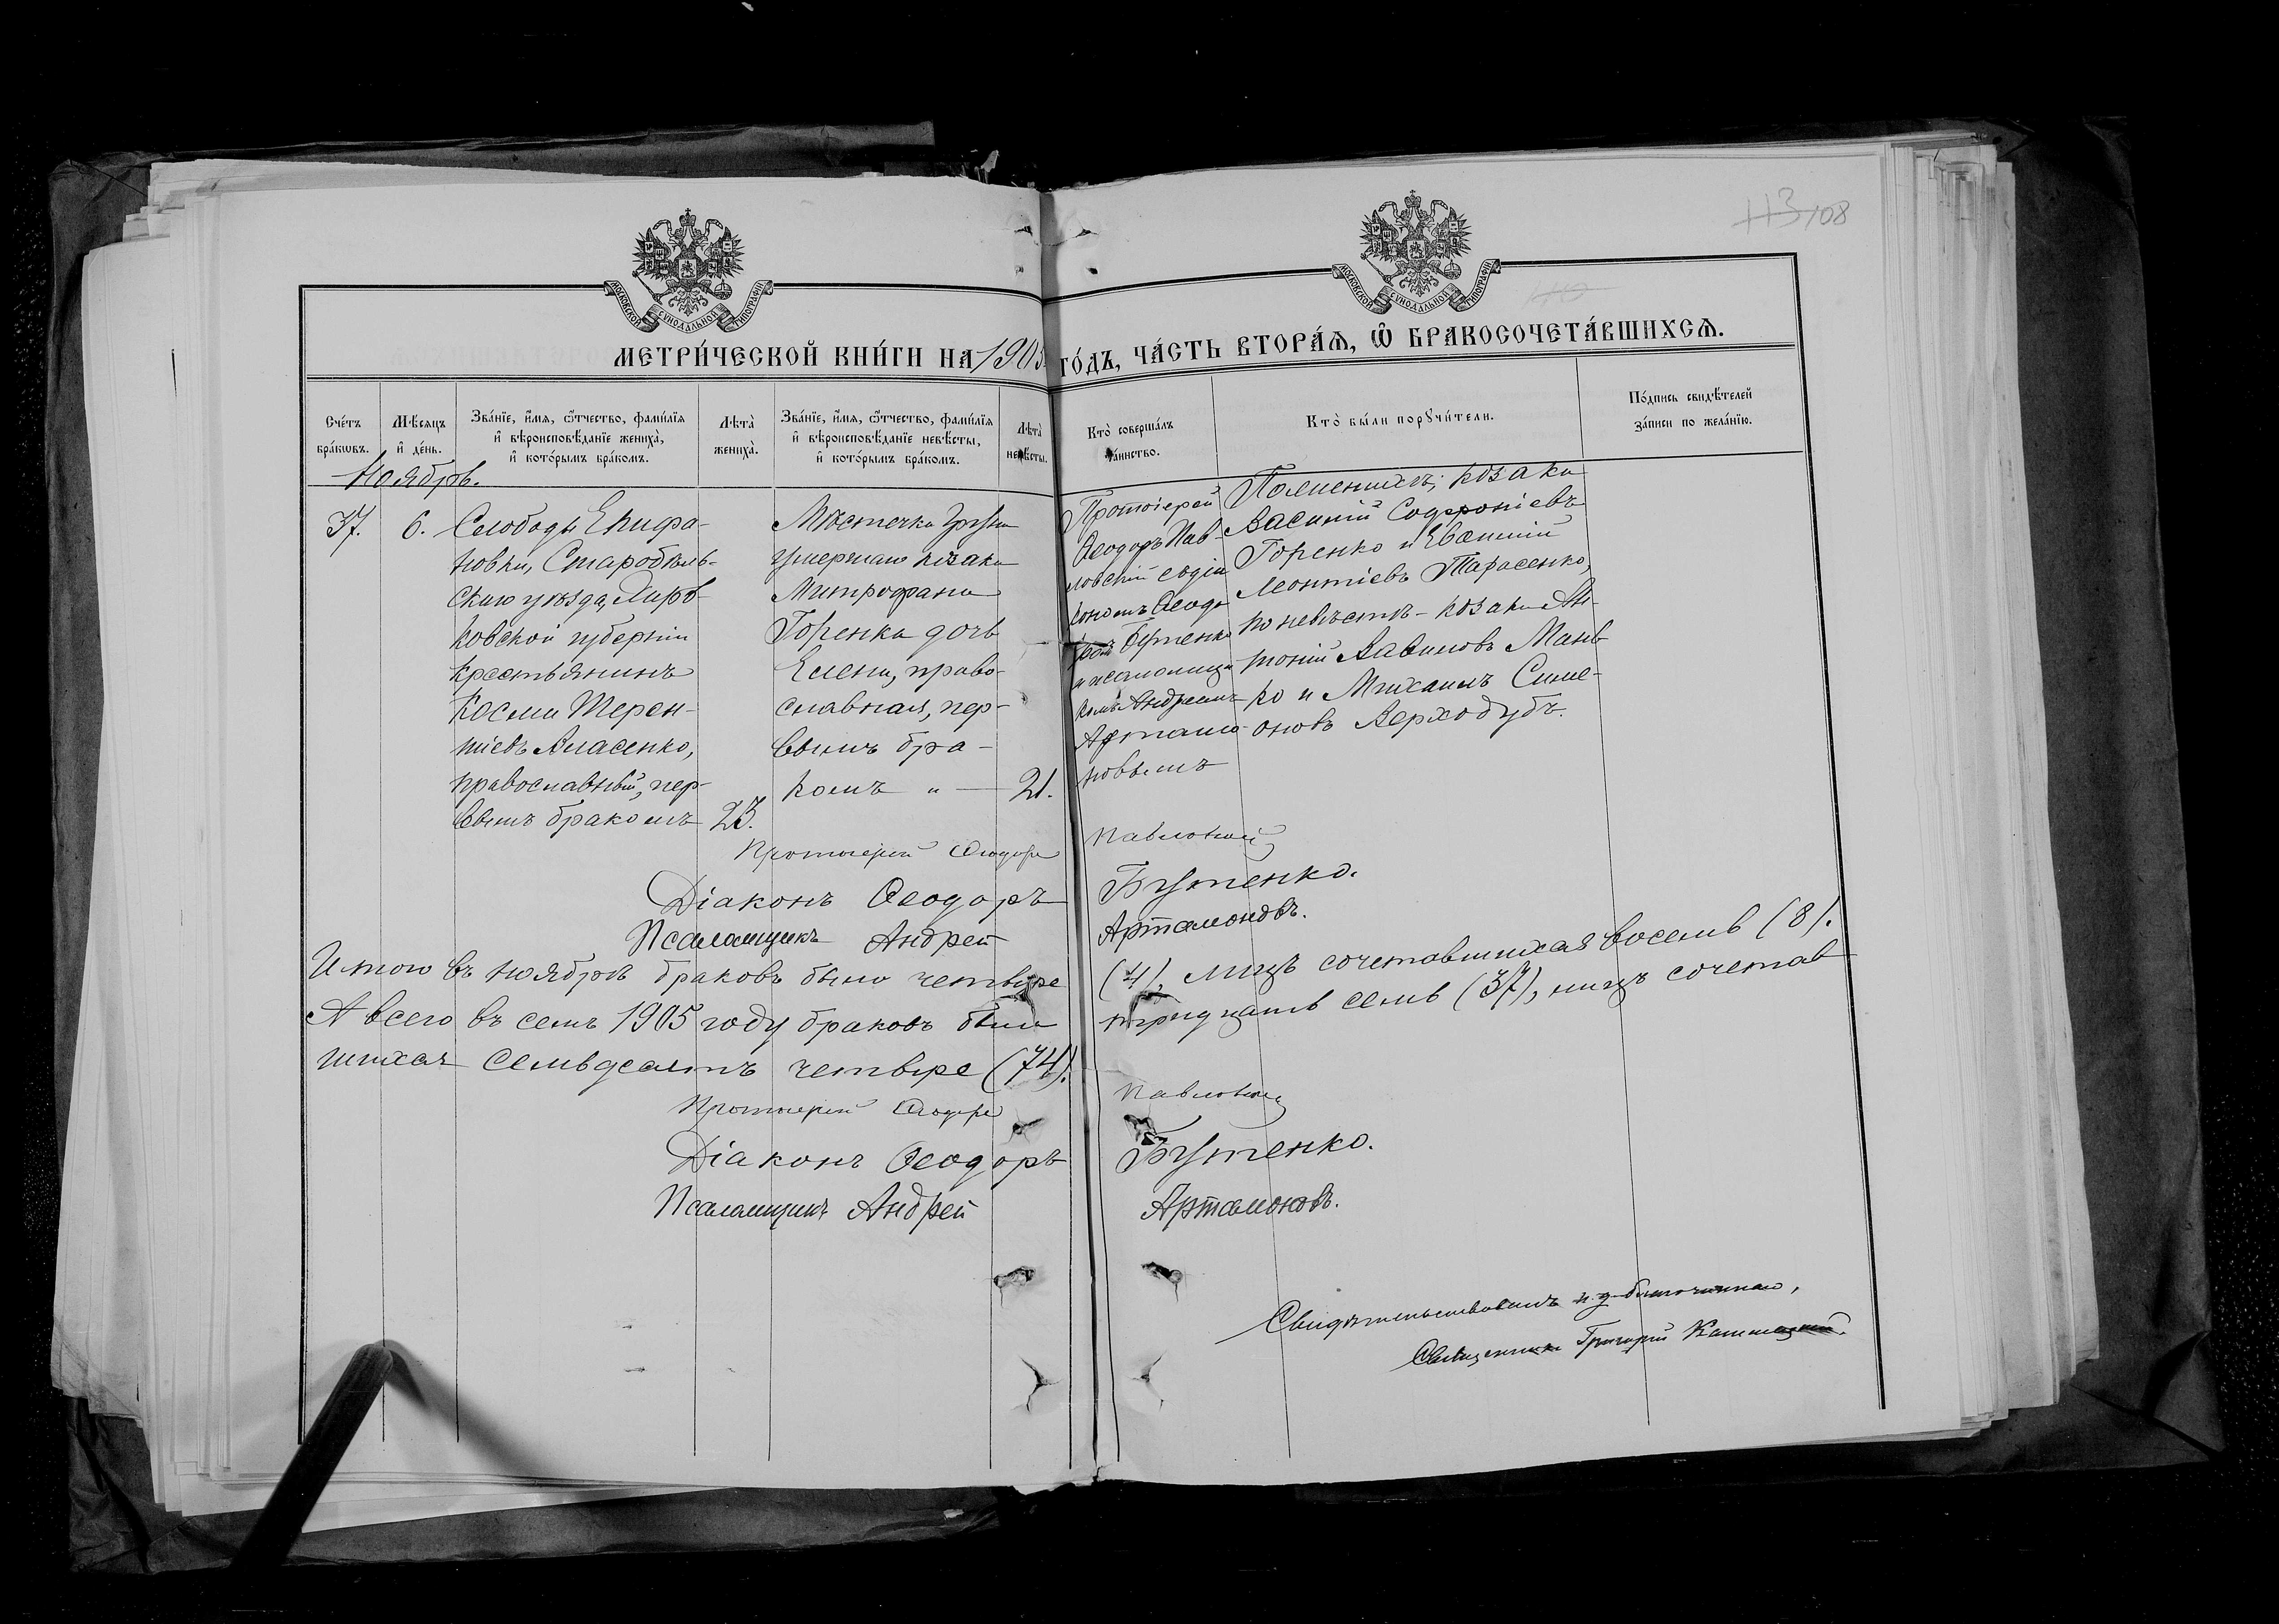 113 108
МОСКОВСКОЙ СУНОДАЛЬНОЙ ТИПОГРАФІИ
МОСКОВСКОЙ СУНОДАЛЬНОЙ ТИПОГРАФІИ
МЕТРИ́ЧЕСКОЙ КНИ́ГИ НА 1905 ГО́ДЪ, ЧА́СТЬ ВТОРА́Я, Ѡ҆ БРАКОСОЧЕТА́ВШИХСЯ.
Сче́тъ
бра́кѡвъ.
Мѣ́сяцъ
и҆ де́нь.
Зва́нїе, и҆́мя, ѻ҆́тчество, фами́лїя
и҆ вѣроисповѣ́данїе жениха̀,
и҆ кото́рымъ бра́комъ.
Лѣта̀
жениха̀.
Зва́нїе, и҆́мя, ѻ҆́тчество, фами́лїя
и҆ вѣроисповѣ́данїе невѣ́сты,
и҆ кото́рымъ бра́комъ.
Лѣта̀
невѣ́сты.
Кто̀ соверша́лъ
та́инство.
Кто̀ бы́ли порꙋчи́тели.
По́дпись свидѣ́телей
за́писи по жела́нїю.
Ноябрь.
37.
6.
Слободы Епифа-
новки, Старобѣль-
скаго уѣзда, Харь-
ковской губерніи
крестьянинъ
Косма Терен-
тіевъ Власенко,
православный, пер-
вымъ бракомъ
23.
Мѣстечка Груни
умершаго козака
Митрофана
Горенка дочь
Елена, право-
славная, пер-
вымъ бра-
комъ " —
21.
Протоіерей
Ѳеодоръ Пав-
ловскій съ діа
кономъ Ѳеодо
ромъ Бутенко
и псаломщи
комъ Андреемъ
Артамо
новымъ
По женихѣ; козаки
Василій Софроніевъ
Горенко и Евѳимій
Леонтіевъ Тарасенко,
по невѣстѣ - козаки Ан-
тоній Вавиловъ Мань
ко и Михаилъ Симе-
оновъ Верходубъ.
Протоіерей Ѳеодоръ Павловскій
Діаконъ Ѳеодоръ Бутенко.
Псаломщикъ Андрей Артамоновъ.
Итого въ ноябрѣ браковъ было четыре (4), лицъ сочетавшихся восемь (8).
А всего въ семъ 1905 году браковъ было тридцать семь (37), лицъ сочетав
шихся семьдесятъ четыре (74).
Протоіерей Ѳеодоръ Павловскій
Діаконъ Ѳеодоръ Бутенко.
Псаломщикъ Андрей Артамоновъ.
Свидѣтельствовалъ и. д. благочиннаго,
Священникъ Григорій